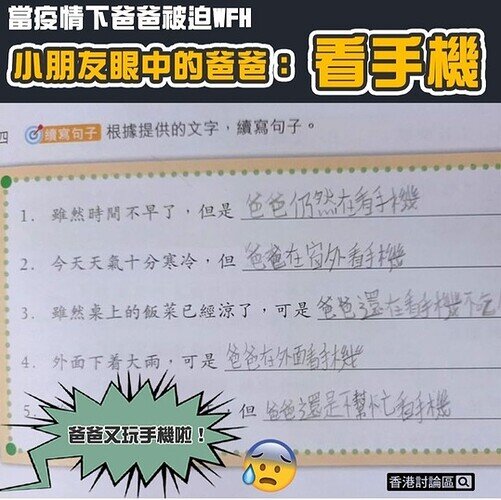 當疫情下爸爸被迫WFH
小朋友眼中的爸爸： 看手機
四 續寫句子 根據提供的文字，續寫句子。
1. 雖然時間不早了，但是 爸爸仍然在看手機
2. 今天天氣十分寒冷，但 爸爸在窗外看手機
3. 雖然桌上的飯菜已經涼了，可是 爸爸還在看手機不吃
4. 外面下着大雨，可是 爸爸在外面看手機
5. 但 爸爸還是不幫忙看手機
爸爸又玩手機啦！
香港討論區